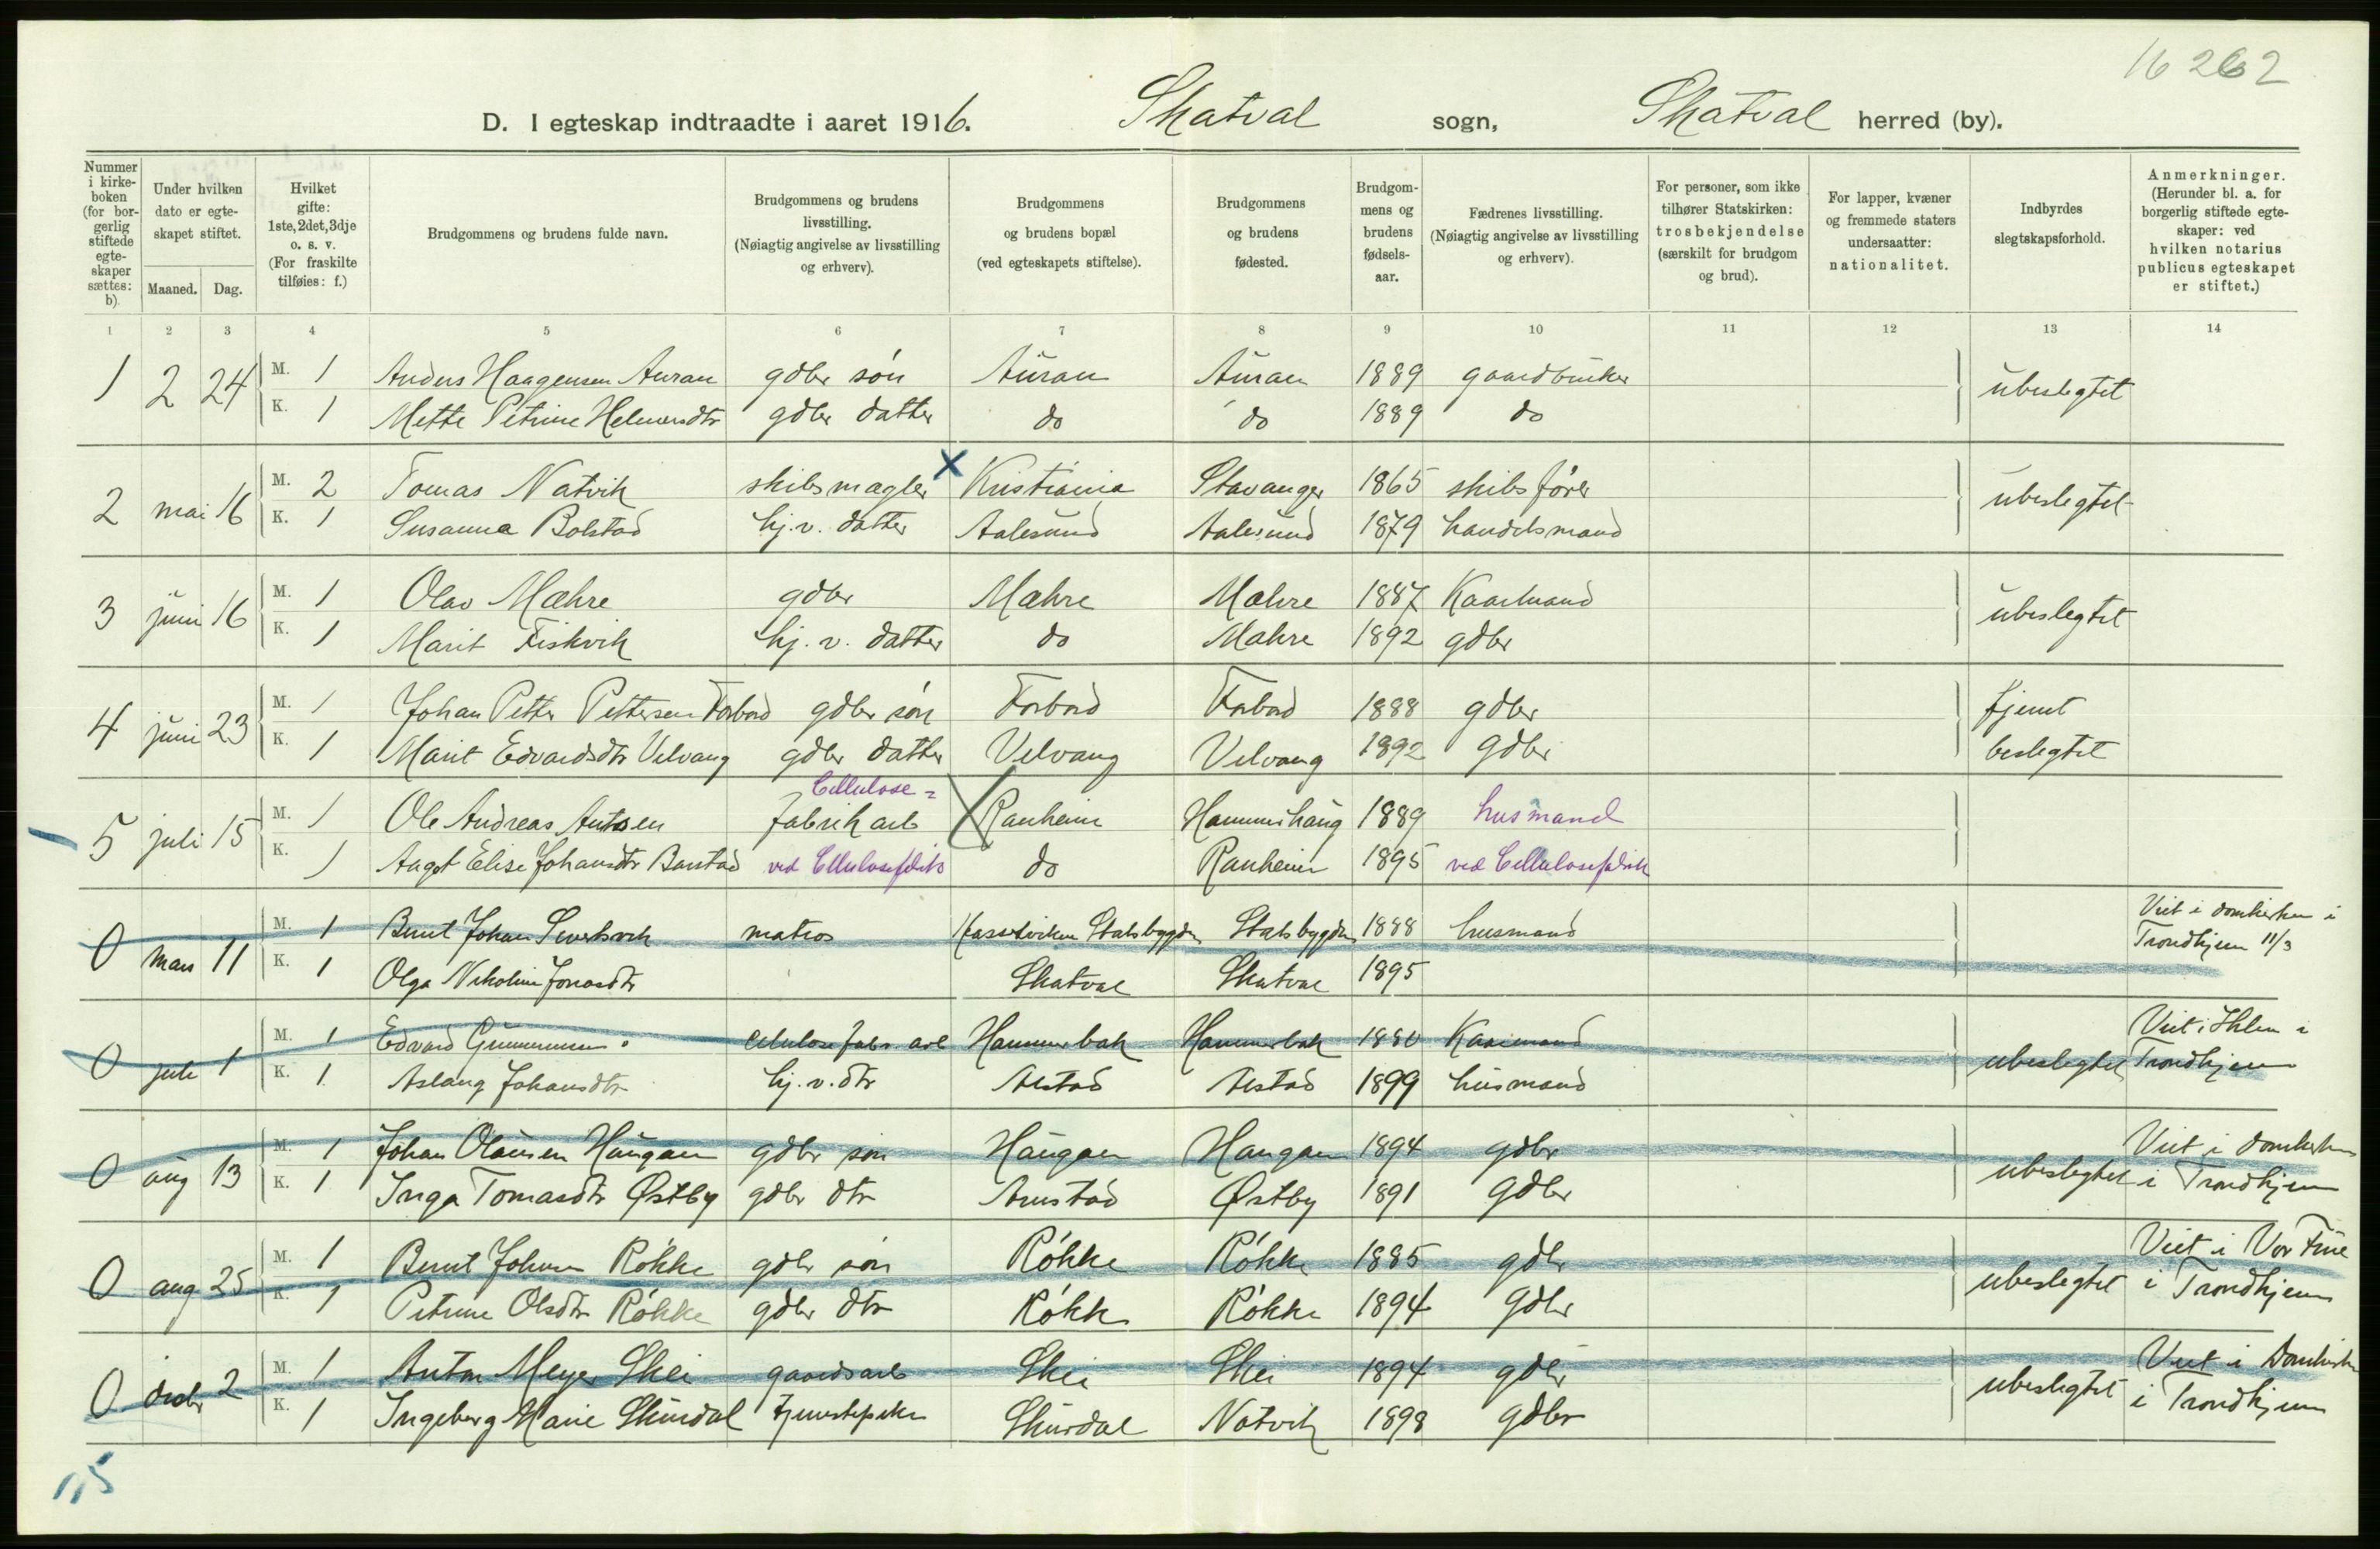 16 262
D. I egteskap indtraadte i aaret 1916. Skatval sogn, Skatval herred (by).
Nummer i kirkeboken (for borgerlig stiftede egteskaper sættes: b)
Under hvilken dato er egteskapet stiftet.
Maaned. Dag.
Hvilket gifte: 1ste, 2det, 3dje o. s. v. (For fraskilte tilføies: f.)
Brudgommens og brudens fulde navn.
Brudgommens og brudens livsstilling. (Nøiagtig angivelse av livsstilling og erhverv).
Brudgommens og brudens bopæl (ved egteskapets stiftelse).
Brudgommens og brudens fødested.
Brudgommens og brudens fødselsaar.
Fædrenes livsstilling. (Nøiagtig angivelse av livsstilling og erhverv).
For personer, som ikke tilhører Statskirken: trosbekjendelse (særskilt for brudgom og brud).
For lapper, kvæner og fremmede staters undersaatter: nationalitet.
Indbyrdes slegtskapsforhold.
Anmerkninger. (Herunder bl. a. for borgerlig stiftede egteskaper: ved hvilken notarius publicus egteskapet er stiftet.)
1 2 3 4 5 6 7 8 9 10 11 12 13 14
1 2 24 M. 1 Anders Haagensen Auran gdbr søn Auran Auran 1889 gaardbruker ubeslegtet
K. 1 Mette Petrine gdbr datter do do 1889 do
2 mai 16 M. 2 Tomas Natvik skibsmagler Kristiania Stavanger 1865 skibsfører ubeslegtet
K. 1 Susanna Bolstad hj. v. datter Aalesund Aalesund 1879 handelsmand
3 juni 16 M. 1 Olav Mæhre gdbr Mæhre Mæhre 1887 Kaarmand ubeslegtet
K. 1 Marit Fiskvik hj. v. datter do Mæhre 1892 gdbr
4 juni 23 M. 1 Johan Petter Pettersen Forbord gdbr søn Forbord Forbord 1888 gdbr fjernt
K. 1 Marit Edvardsdtr Velvang gdbr datter Velvang Velvang 1892 gdbr beslegtet
Cellulose=
5 juli 15 M. 1 Ole Andreas Antonsen fabrik arb Ranheim Hammerhaug 1889 husmand
K. 1 Aagot Elise Johansdtr Barstad ved Cellulosefabrik do Ranheim 1895 ved Cellulosefabrik
0 mars 11 M. 1 Bernt Johan matros Stadsbygden Stadsbygden 1888 husmand Viet i domkirken i
K. 1 Olga Nikoline Jonasdtr Skatval Skatval 1895 Trondhjem 11/3
0 juli 1 M. 1 Edvard Gunnarsen Cellulose fabr. arb Hammerbak Hammerbak 1880 Kaarmand ubeslegtet Viet i Ihlen i
K. 1 Aslaug Johansdtr hj. v. dtr Alstad Alstad 1899 husmand Trondhjem
0 aug 13 M. 1 Johan Olausen Haugan gdbr søn Haugan Haugan 1894 gdbr ubeslegtet Viet i domkirken
K. 1 Inga Tomasdtr Østby gdbr dtr Arnstad Østby 1891 gdbr i Trondhjem
0 aug 25 M. 1 Bernt Johan Røkke gdbr søn Røkke Røkke 1885 gdbr ubeslegtet Viet i Vor Frue
K. 1 Petrine Olsdtr Røkke gdbr dtr Røkke Røkke 1894 gdbr i Trondhjem
0 decbr 2 M. 1 Anton Meyer Skei gaardsarb Skei Skei 1894 gdbr ubeslegtet Viet i Domkirken
K. 1 Ingeborg Marie Skurdal tjenestepike Skurdal Natvik 1898 gdbr i Trondhjem